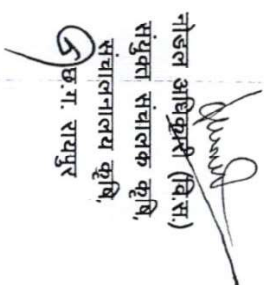 नोडल अधिकारी (वि.स.)
संयुक्त संचालक कृषि,
संचालनालय कृषि,
छ.ग. रायपुर